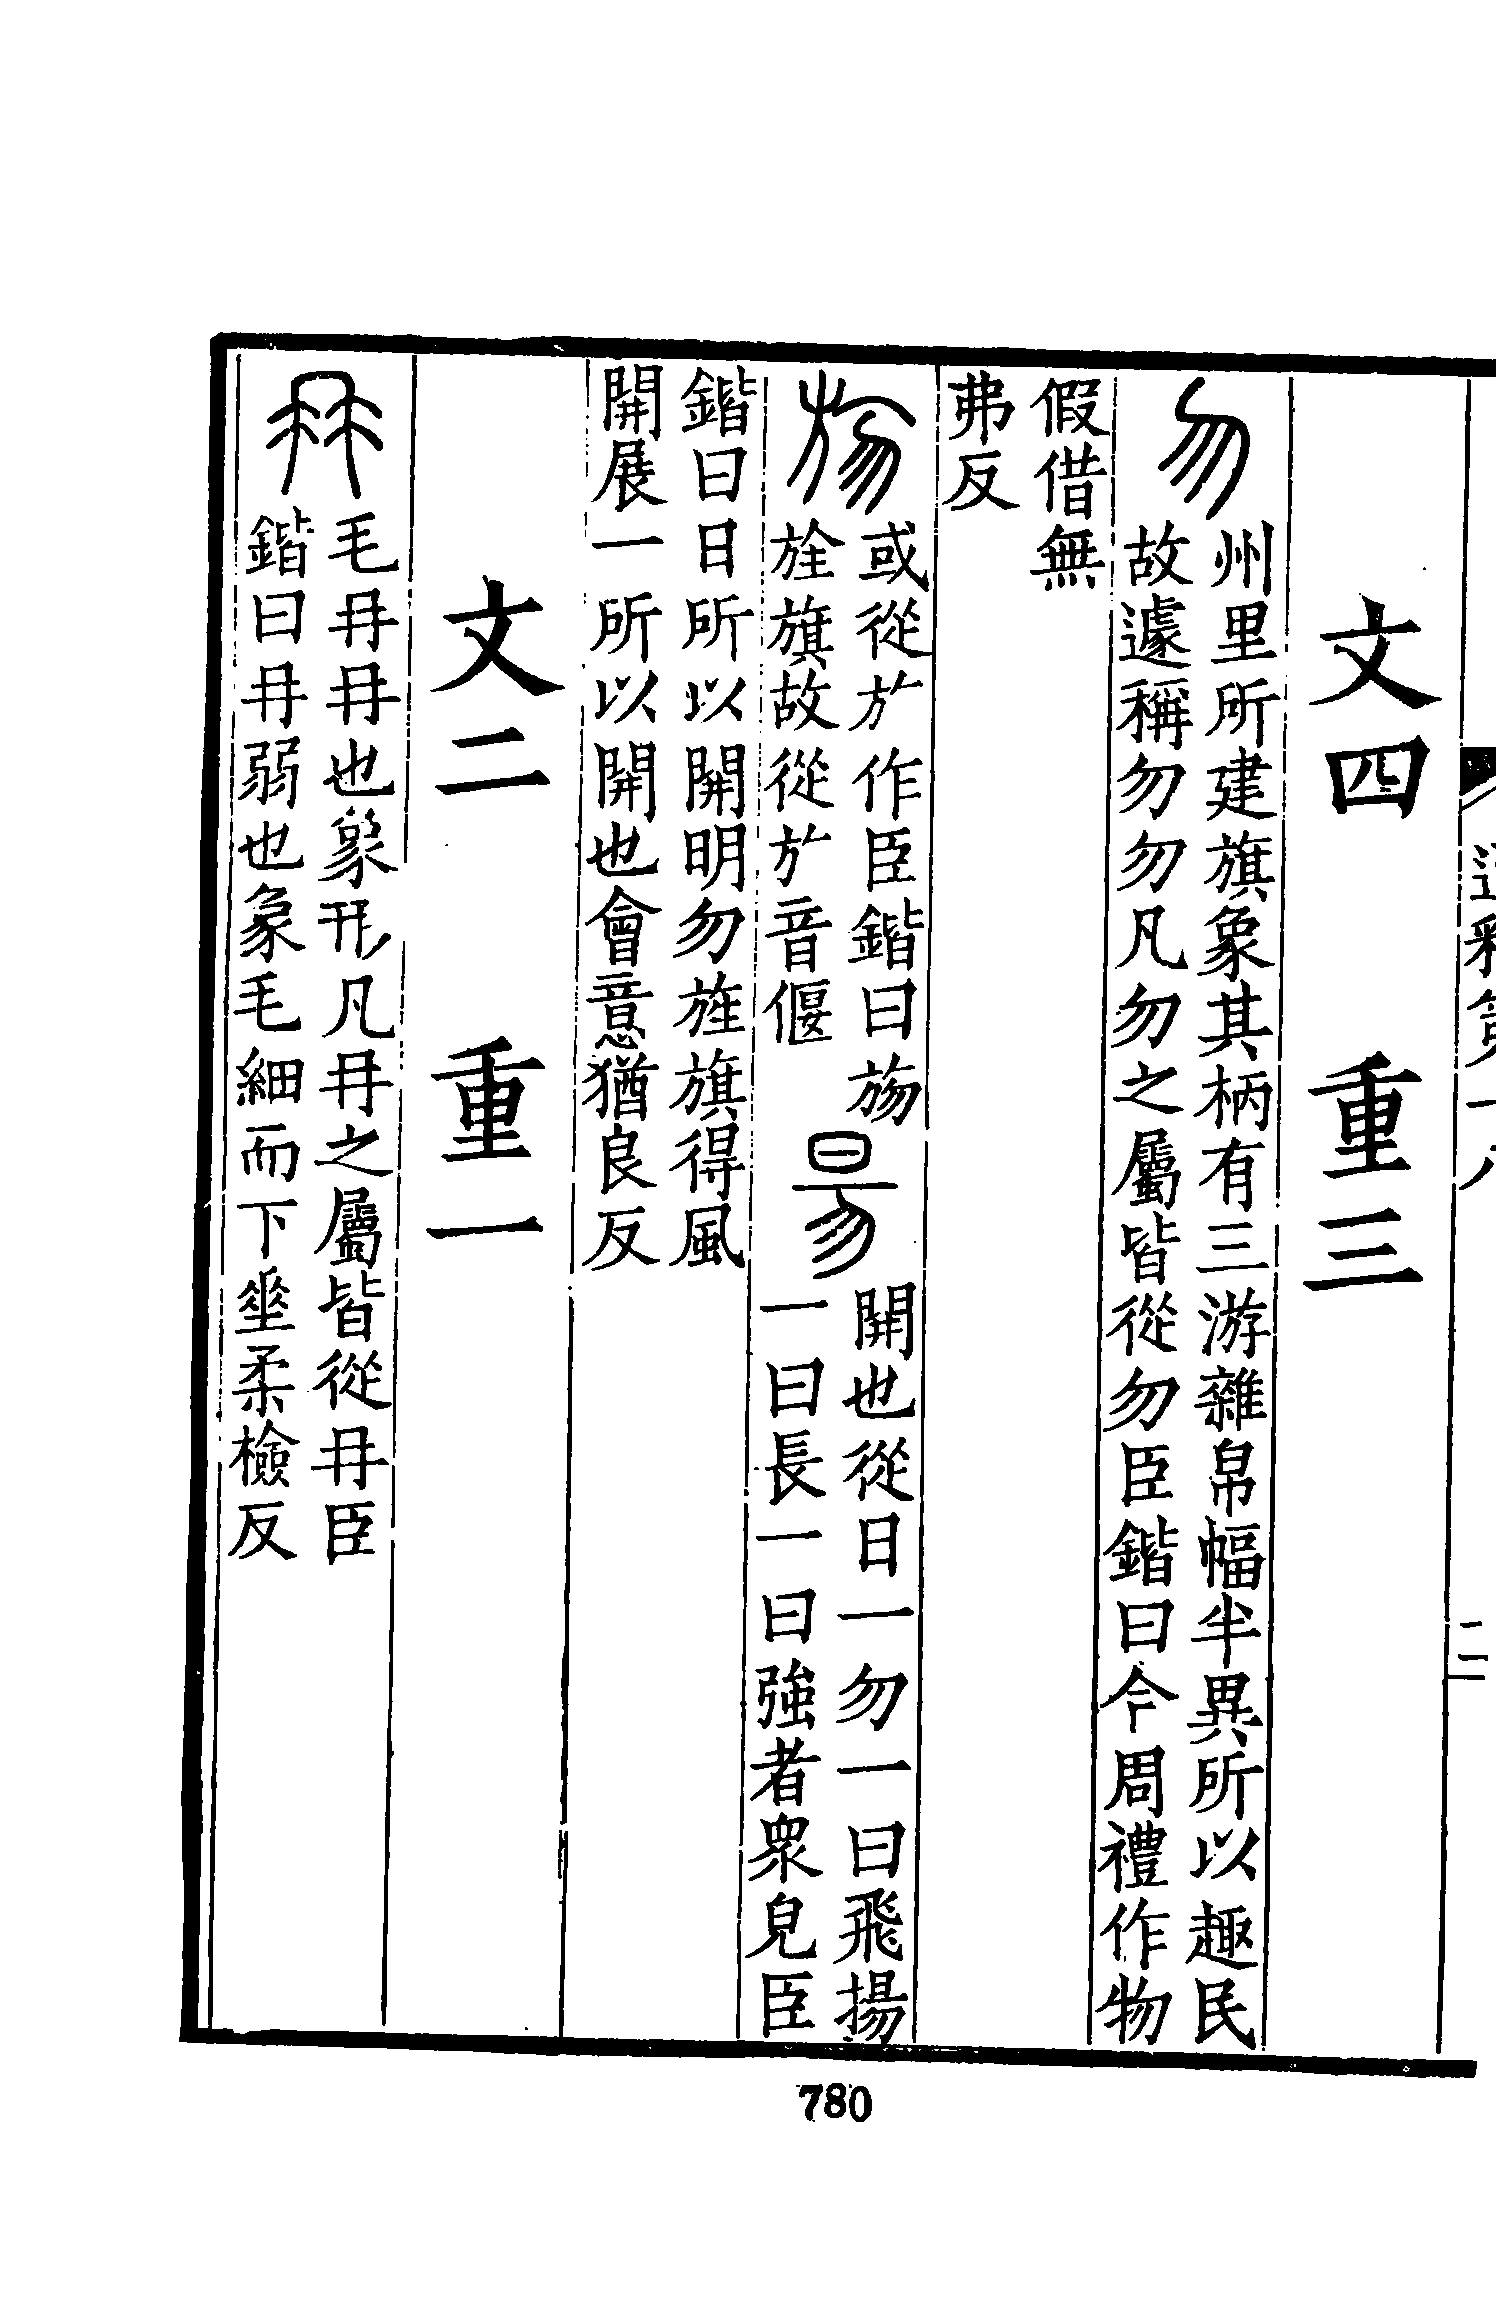 文四　重三
勿
州里所建旗象其柄有三游雜帛幅半異所以趣民
故遽稱勿勿凡勿之屬皆從勿臣鍇曰今周禮作物
假借無
弗反
𣃦
或從㫃作臣鍇曰𣃦
旌旗故從㫃㫃音偃
昜
開也從日一勿一曰飛揚
一曰長一曰強者眾皃臣
鍇曰日所以開明勿旌旗得風
開展一所以開也會意猶良反
文二　重一
冄
毛冄冄也象形凡冄之屬皆從冄臣
鍇曰冄弱也象毛細而下垂柔檢反
二
780